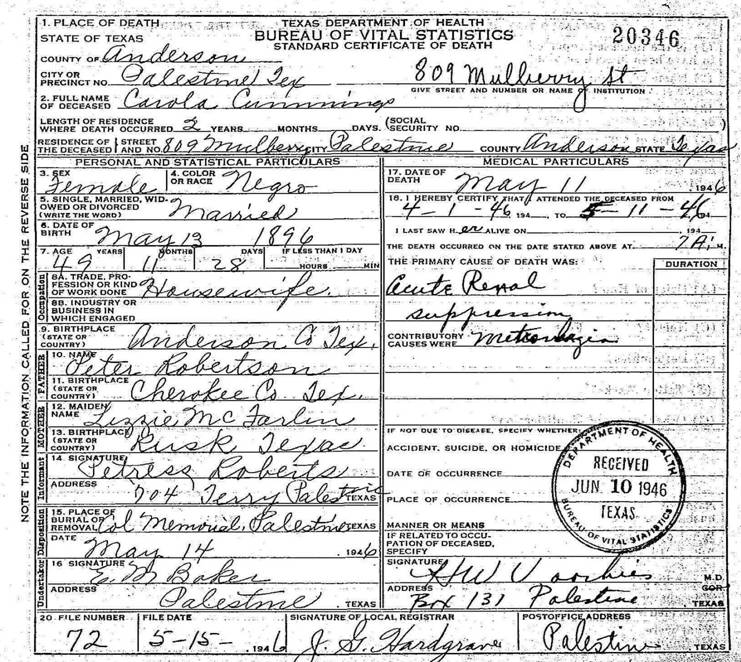 1. PLACE OF DEATH TEXAS DEPARTMENT OF HEALTH
STATE OF TEXAS BUREAU OF VITAL STATISTICS 20346
STANDARD CERTIFICATE OF DEATH
COUNTY OF Anderson
CITY OR PRECINCT NO. Palestine Tex 809 Mulberry St
GIVE STREET AND NUMBER OR NAME OF INSTITUTION
2. FULL NAME OF DECEASED Carola Cummings
LENGTH OF RESIDENCE WHERE DEATH OCCURRED 2 YEARS MONTHS DAYS. (SOCIAL SECURITY NO.
RESIDENCE OF THE DECEASED (STREET AND NO. 809 Mulberry CITY Palestine COUNTY Anderson STATE Texas
PERSONAL AND STATISTICAL PARTICULARS MEDICAL PARTICULARS
3. SEX Female 4. COLOR OR RACE Negro
5. SINGLE, MARRIED, WIDOWED OR DIVORCED (WRITE THE WORD) Married
6. DATE OF BIRTH May 13 1896
7. AGE YEARS MONTHS DAYS IF LESS THAN 1 DAY
49 11 28 HOURS MIN
Occupation
8A. TRADE, PROFESSION OR KIND OF WORK DONE Housewife
8B. INDUSTRY OR BUSINESS IN WHICH ENGAGED
9. BIRTHPLACE (STATE OR COUNTRY) Anderson Co Tex,
FATHER
10. NAME Peter Robertson
11. BIRTHPLACE (STATE OR COUNTRY) Cherokee Co. Tex.
MOTHER
12. MAIDEN NAME Lizzie McFarlin
13. BIRTHPLACE (STATE OR COUNTRY) Rusk Texas
Informant
14. SIGNATURE Petress Roberts
ADDRESS 704 Terry Palestine TEXAS
Undertaker Disposition
15. PLACE OF BURIAL OR REMOVAL Col Memorial, Palestine TEXAS
DATE May 14 1946
16 SIGNATURE E. M Baker
ADDRESS Palestine, TEXAS
17. DATE OF DEATH May 11 1946
18. I HEREBY CERTIFY THAT I ATTENDED THE DECEASED FROM
4-1-46 194 TO 5-11-46 194
I LAST SAW H er ALIVE ON 194
THE DEATH OCCURRED ON THE DATE STATED ABOVE AT 7 A. M.
THE PRIMARY CAUSE OF DEATH WAS: DURATION
Acute Renal
suppression
CONTRIBUTORY CAUSES WERE Metrorhagia
IF NOT DUE TO DISEASE, SPECIFY WHETHER
ACCIDENT, SUICIDE, OR HOMICIDE
DATE OF OCCURRENCE
PLACE OF OCCURRENCE
MANNER OR MEANS
IF RELATED TO OCCUPATION OF DECEASED, SPECIFY
DEPARTMENT OF HEALTH
RECEIVED
JUN 10 1946
TEXAS
BUREAU OF VITAL STATISTICS
SIGNATURE H W Voorhies M.D.
ADDRESS Box 131 Palestine TEXAS
20 FILE NUMBER FILE DATE SIGNATURE OF LOCAL REGISTRAR POSTOFFICE ADDRESS
72 5-15- 1946 J. G. Hardgrave Palestine TEXAS
NOTE THE INFORMATION CALLED FOR ON THE REVERSE SIDE